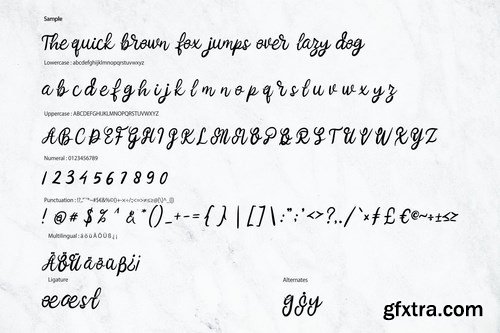 Sample
The quick brown fox jumps over lazy dog
Lowercase : abcdefghijklmnopqrstuvwxyz
a b c d e f g h i j k l m n o p q r s t u v w x y z
Uppercase : ABCDEFGHIJKLMNOPQRSTUVWXYZ
A B C D E F G H I J K L M N O P Q R S T U V W X Y Z
Numeral : 0123456789
1 2 3 4 5 6 7 8 9 0
Punctuation :
! @ # $ % ^ & * ( ) _ + - = { } | [ ] \ : " ; ' < > ? , . / ` × ƒ £ € © ~ ÷ ± ≤ ≥
Multilingual : ä ö ü Ä Ö Ü ß ¿ ¡
Ligature
Alternates
œ æ st
g g y
gfxtra.com